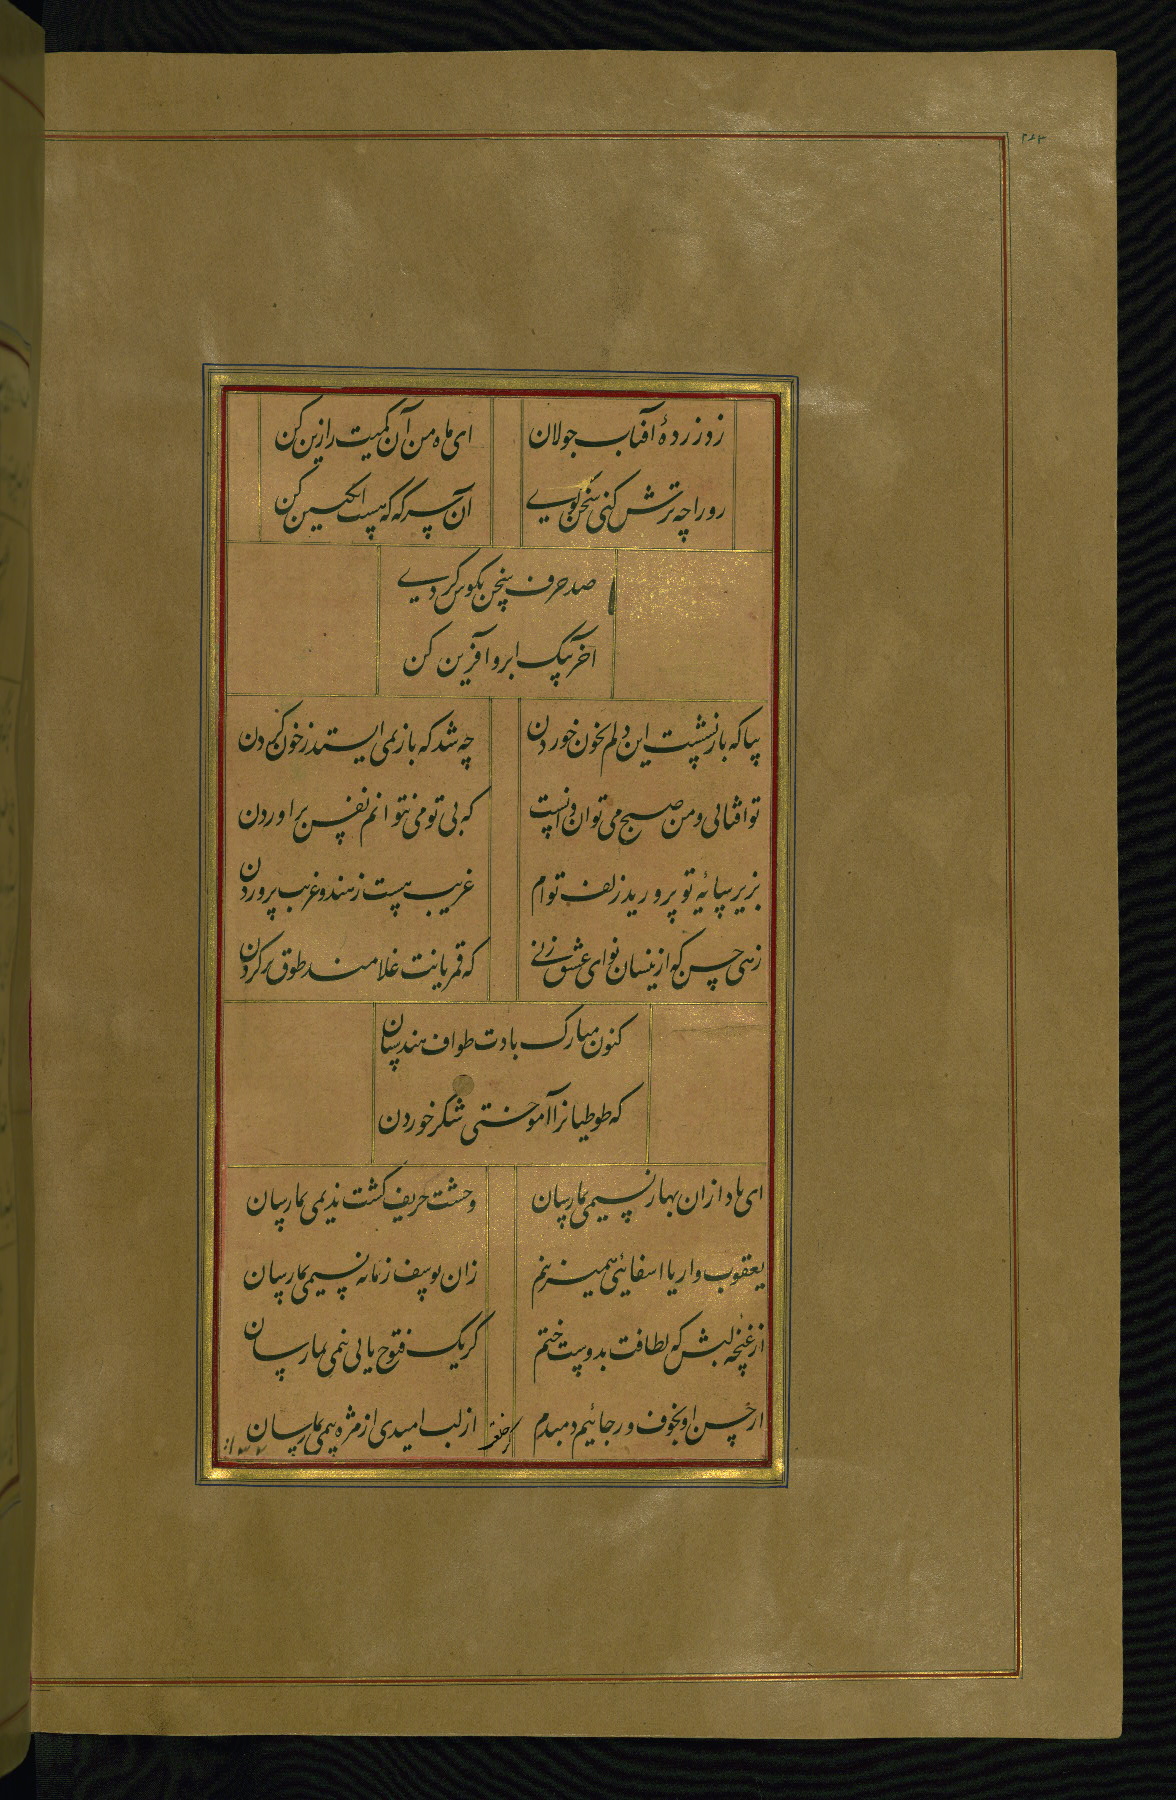 ۲۸۳
زد زردهٔ آفتاب جولان ای ماه من آن کمیت را زین کن
رو را چه ترش کنی سخن گوی آن سرکه که هست انگبین کن
صد حرف سخن بگوش کردی
اخر بیک ابرو آفرین کن
بیا که باز نشست این دلم بخون خوردن چه شد که باز نمی ایستد ز خون کردن
تو افتابی و من صبح می توان دانست که بی تو می نتوانم نفس براوردن
بزیر سایهٔ تو پرورید زلف توام غریب هست ز هندو غریب پروردن
زهی حسن که ازینسان نوای عشق زنی که قمریانت غلامند طوق بر کردن
کنون مبارک بادت طواف هندستان
که طوطیانرا آموختی شکر خوردن
ای باد ازان بهار نسیمی بما رسان وحشت حریف کشت ندیمی بما رسان
یعقوب وار یا اسفائی همیزنم زان یوسف زمانه نسیمی بما رسان
از غنچه لبش که لطافت بدوست ختم گر یک فتوح یابی نیمی بما رسان
از حسن او بخوف و رجائیم دمبدم از لب امیدی از مژه بیمی بما رسان